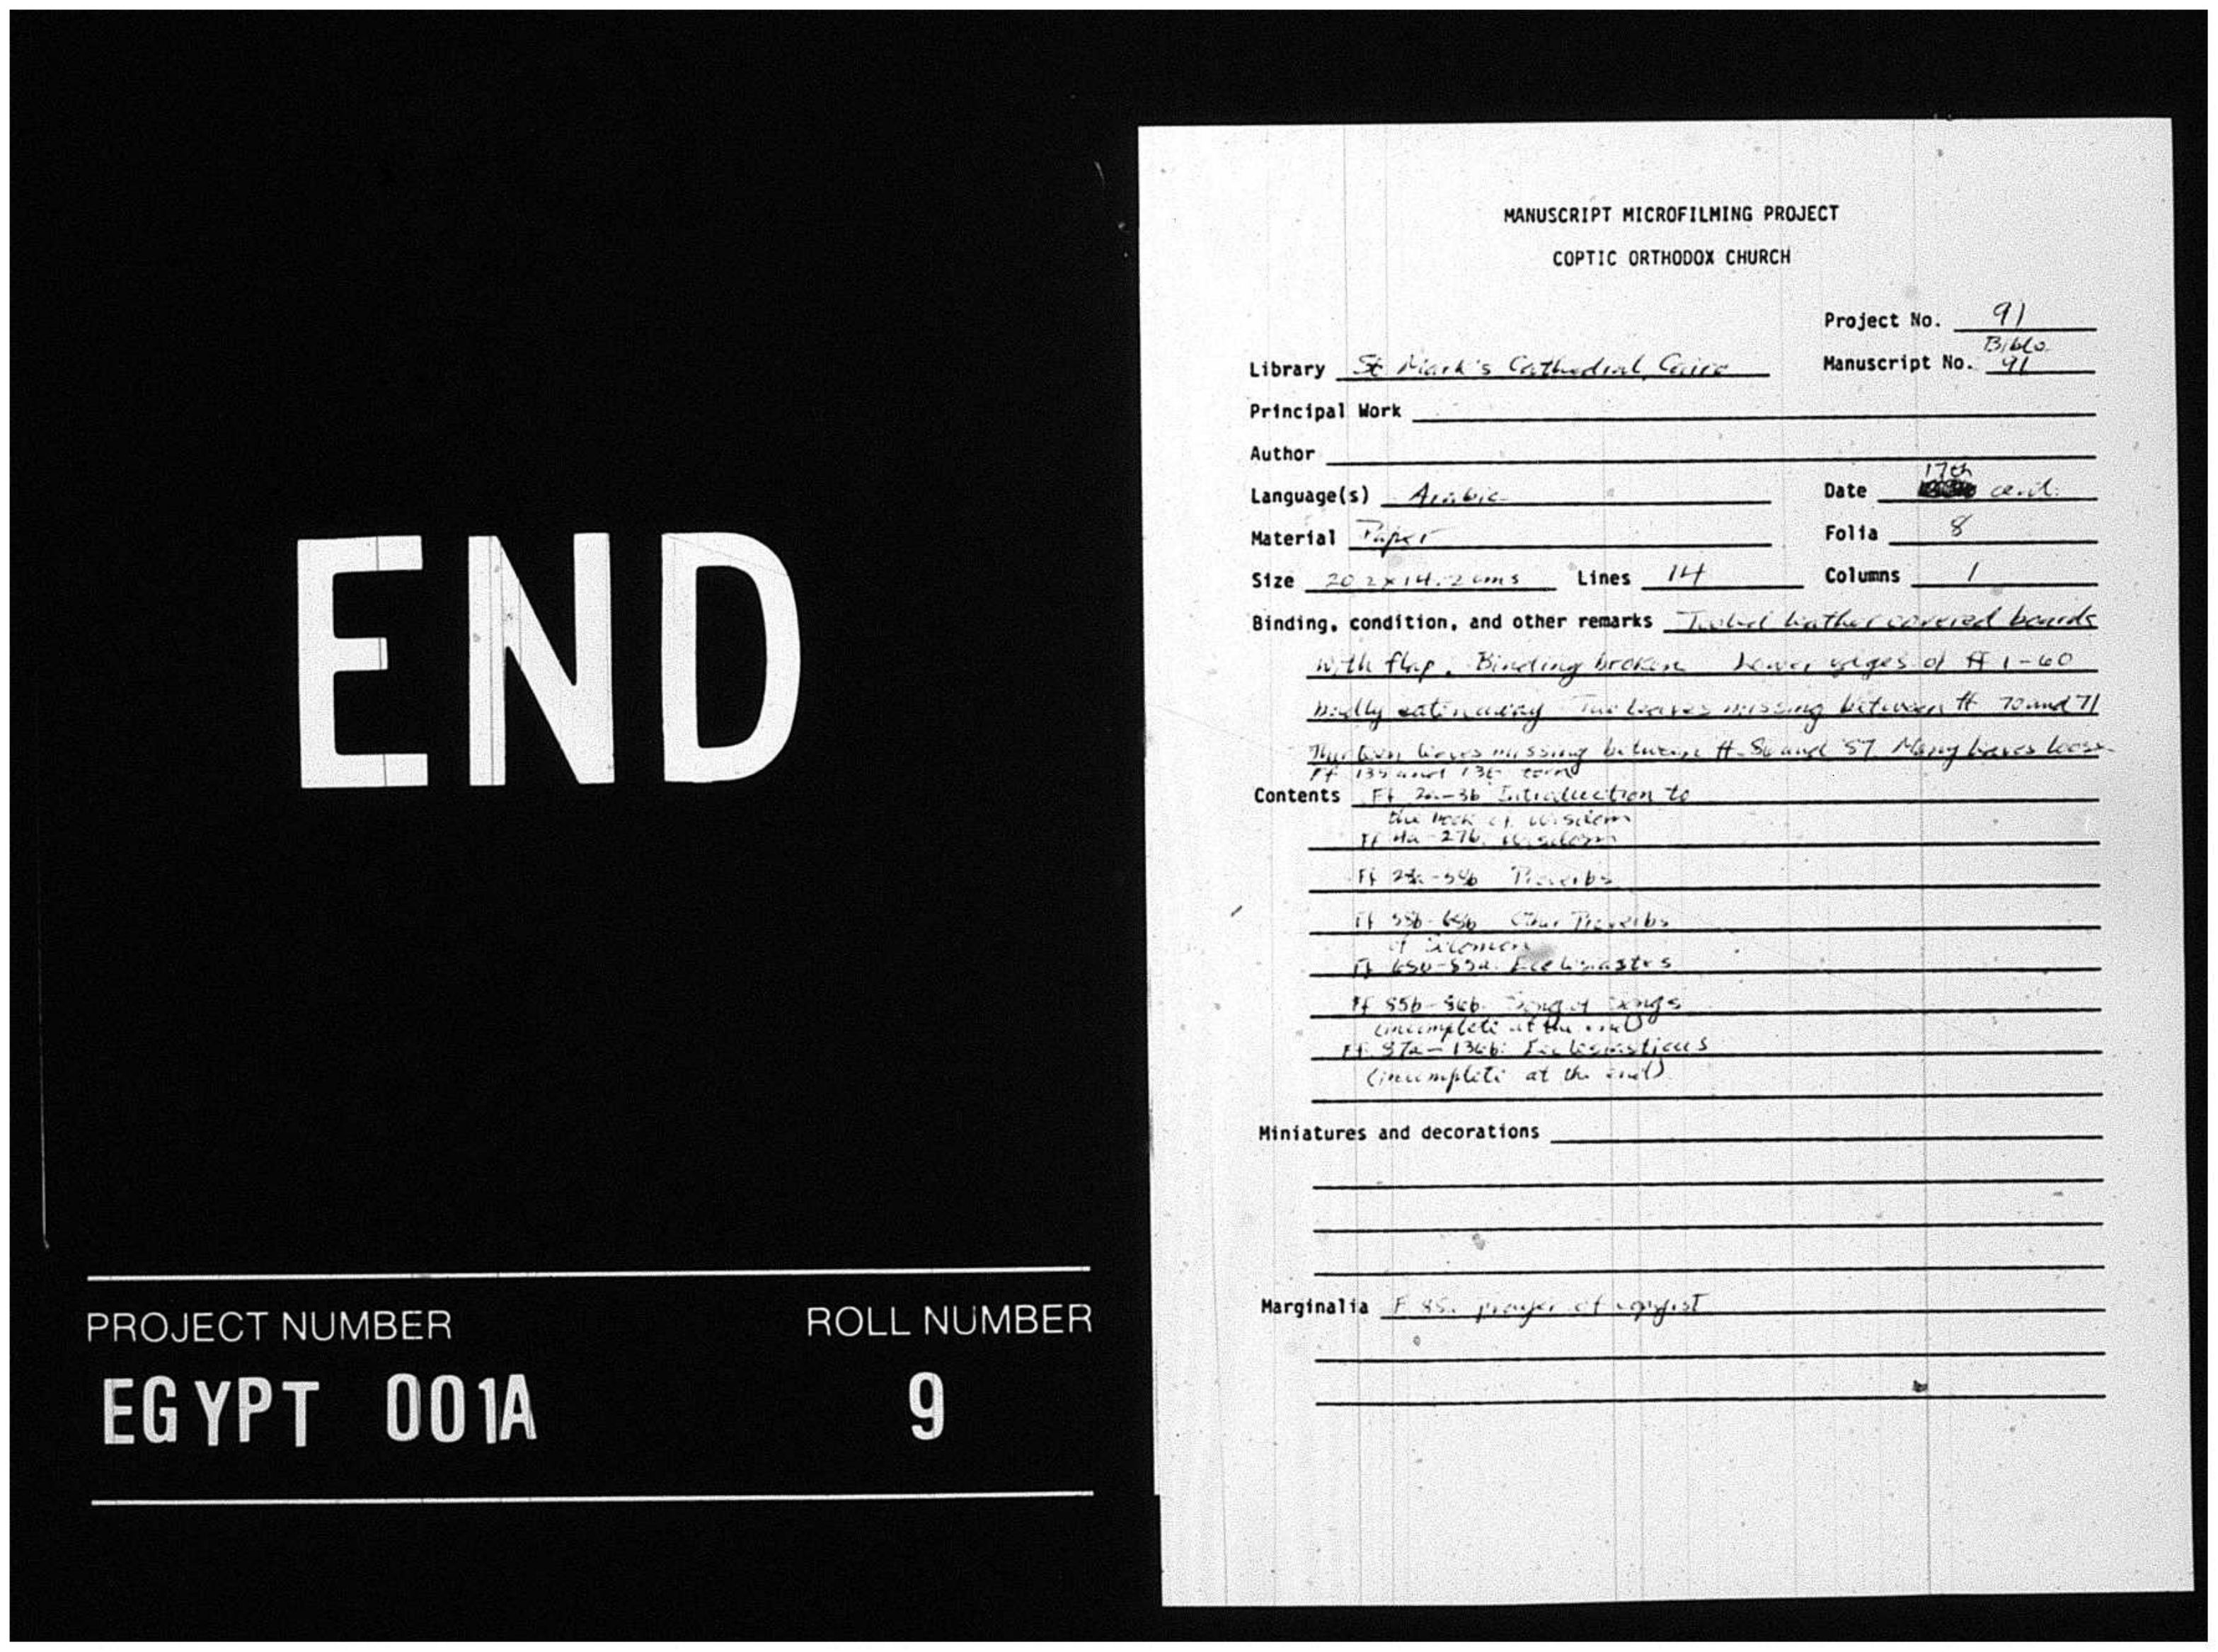 END
PROJECT NUMBER
ROLL NUMBER
EGYPT 001A
9
MANUSCRIPT MICROFILMING PROJECT
COPTIC ORTHODOX CHURCH
Project No. 91
Library St Mark's Cathedral, Cairo Manuscript No. Biblo. 91
Principal Work
Author
Language(s) Arabic Date 17th cent.
Material Paper Folia 8
Size 20.2 x 14.2 cms Lines 14 Columns 1
Binding, condition, and other remarks Tooled leather covered boards
with flap. Binding broken Lower edges of ff 1-60
badly eaten away Two leaves missing between ff 70 and 71
Thirteen leaves missing between ff. 86 and 87 Many leaves loose
Ff 135 and 136 torn
Contents Ff 2a-3b Introduction to
the Book of Wisdom
Ff 4a-27b Wisdom
Ff Proverbs
Ff Other Proverbs
of Solomon
Ff Ecclesiastes
Ff 85b-86b. Song of Songs
(incomplete at the end)
Ff. 87a-136b: Ecclesiasticus
(incomplete at the end)
Miniatures and decorations
Marginalia F prayer of copyist